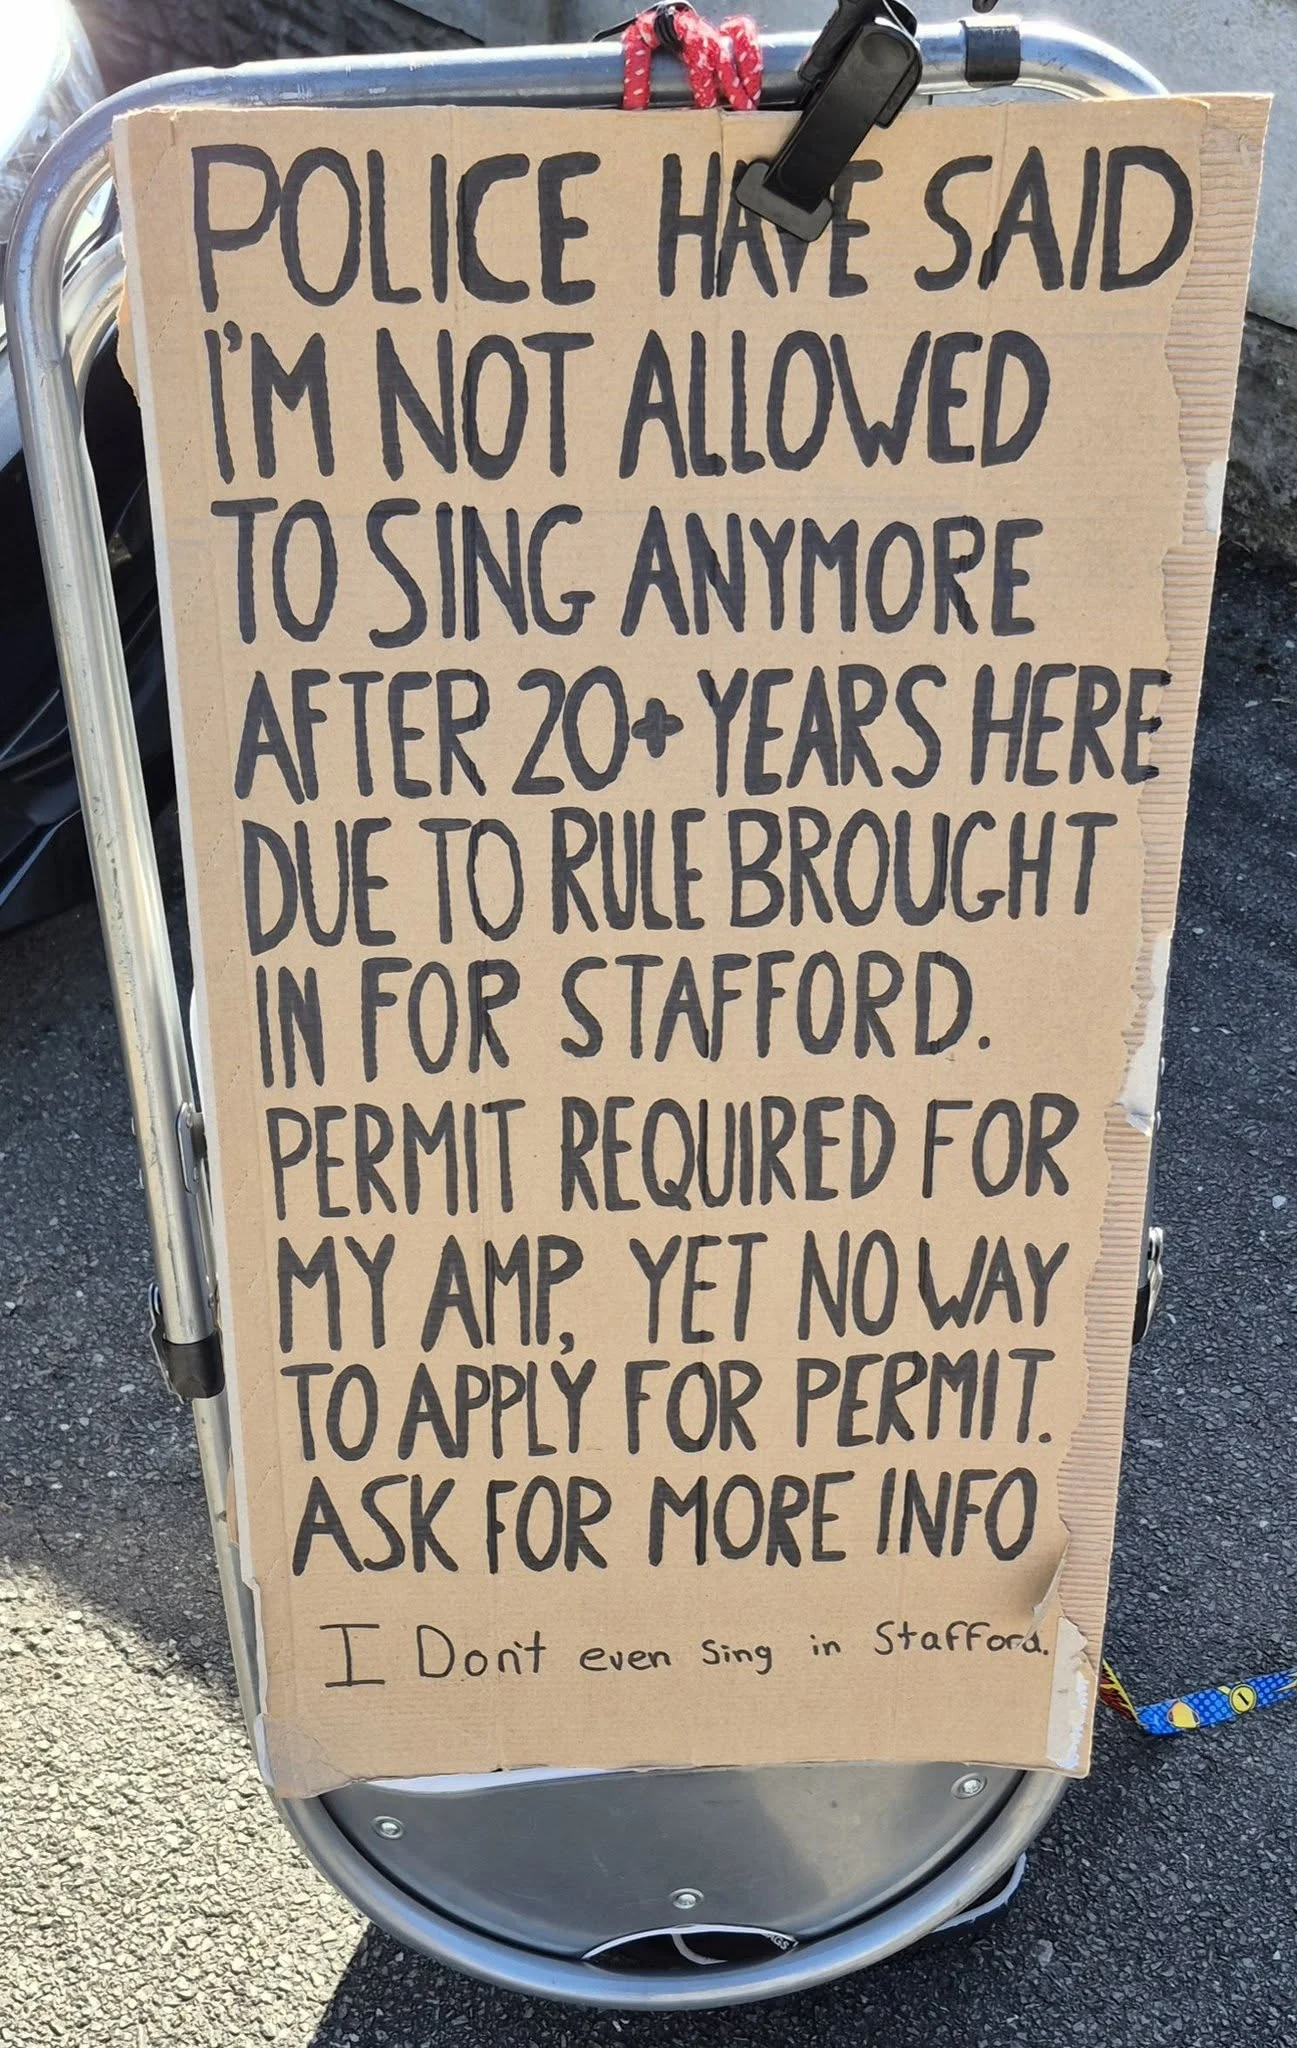 POLICE HAVE SAID
I'M NOT ALLOWED
TO SING ANYMORE
AFTER 20+ YEARS HERE
DUE TO RULE BROUGHT
IN FOR STAFFORD.
PERMIT REQUIRED FOR
MY AMP, YET NO WAY
TO APPLY FOR PERMIT.
ASK FOR MORE INFO
I Don't even sing in Stafford.